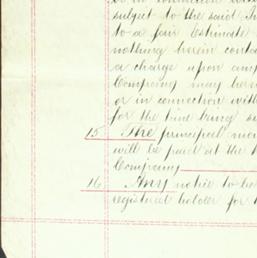 or in connection with
subject to the said In
to a fair Estimate
nothing herein conta
a charge upon any
Company may here
or in connection with
for the time being su
15 The principal mon
will be paid at the
Company
16 Any notice to be
registered holder for